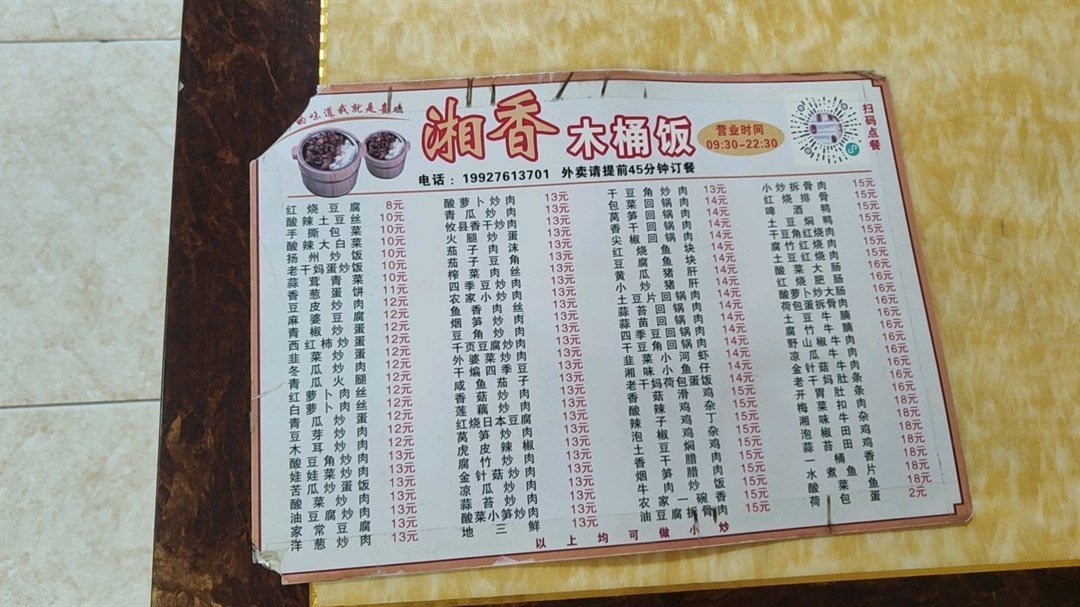 的味道我就是喜欢
湘香 木桶饭
营业时间
09:30-22:30
扫码点餐
电话：19927613701 外卖请提前45分钟订餐
红烧豆腐 8元
酸辣土豆丝 10元
手撕包菜 10元
酸辣大白菜 10元
扬州炒饭 10元
老干妈蛋炒饭 10元
蒜茸青菜 10元
香葱蛋饼 11元
豆皮炒肉 12元
麻婆豆腐 12元
青椒炒蛋 12元
西红柿炒蛋 12元
韭菜炒蛋 12元
冬瓜炒肉 12元
青瓜火腿 12元
红萝卜肉丝 12元
白萝卜肉丝 12元
青瓜炒蛋 12元
豆芽炒肉 12元
木耳炒肉 12元
酸豆角炒肉 13元
娃娃菜炒肉 13元
苦瓜炒蛋 13元
酸菜炒肉 13元
油豆腐炒肉 13元
家常豆腐 13元
洋葱炒肉 13元
酸萝卜炒肉 13元
青瓜炒肉 13元
攸县香干炒肉 13元
火腿炒蛋 13元
茄子肉沫 13元
茄子豆角 13元
榨菜肉丝 13元
四季豆炒肉 13元
农家小炒肉 13元
鱼香肉丝 13元
烟笋炒肉 13元
豆角炒肉 13元
千页豆腐炒肉 13元
外婆菜炒肉 13元
干煸四季豆 13元
咸鱼茄子 13元
香菇炒肉 13元
莲藕炒肉 13元
红烧日本豆腐 13元
莴笋炒肉 13元
虎皮辣椒 13元
腐竹炒肉 13元
金针菇炒肉 13元
凉瓜炒肉 13元
蒜苔炒肉 13元
酸菜小笋炒肉 13元
地三鲜 13元
干豆角炒肉 13元
包菜回锅肉 14元
莴笋回锅肉 14元
香干回锅肉 14元
尖椒回锅肉 14元
红烧鱼块 14元
豆腐鱼块 14元
黄瓜猪肝 14元
小炒猪肝 14元
土豆片回锅肉 14元
蒜苔回锅肉 14元
蒜苗回锅肉 14元
四季豆回锅肉 14元
干豆角回锅肉 14元
韭菜小河虾 14元
湘味小鱼仔 14元
老干妈荷包蛋饭 14元
香菇滑鸡 15元
酸辣鸡杂 15元
辣子鸡丁 15元
泡椒鸡杂 15元
土豆焖鸡 15元
香干腊肉 15元
烟笋腊肉 15元
牛肉炒饭 15元
农家一碗香 15元
油豆腐拆骨肉 15元
小炒拆骨肉 15元
红烧排骨 15元
啤酒鸭 15元
土豆焖鸭 15元
干豆角红烧肉 15元
腐竹红烧肉 15元
土豆红烧肉 16元
酸菜大肠 16元
红烧肥肠 16元
萝卜炒大肠 16元
荷包蛋拆骨肉 16元
土豆牛腩 16元
腐竹牛腩 16元
野山椒牛肉 16元
凉瓜牛肉 16元
金针菇牛肉 16元
老干妈牛肚 16元
开胃肚条 16元
梅菜扣肉 18元
湘味牛杂 18元
泡椒田鸡 18元
蒜苔田鸡 18元
一桶香 18元
水煮肉片 18元
酸菜鱼 18元
荷包蛋 2元
以上均可做小炒